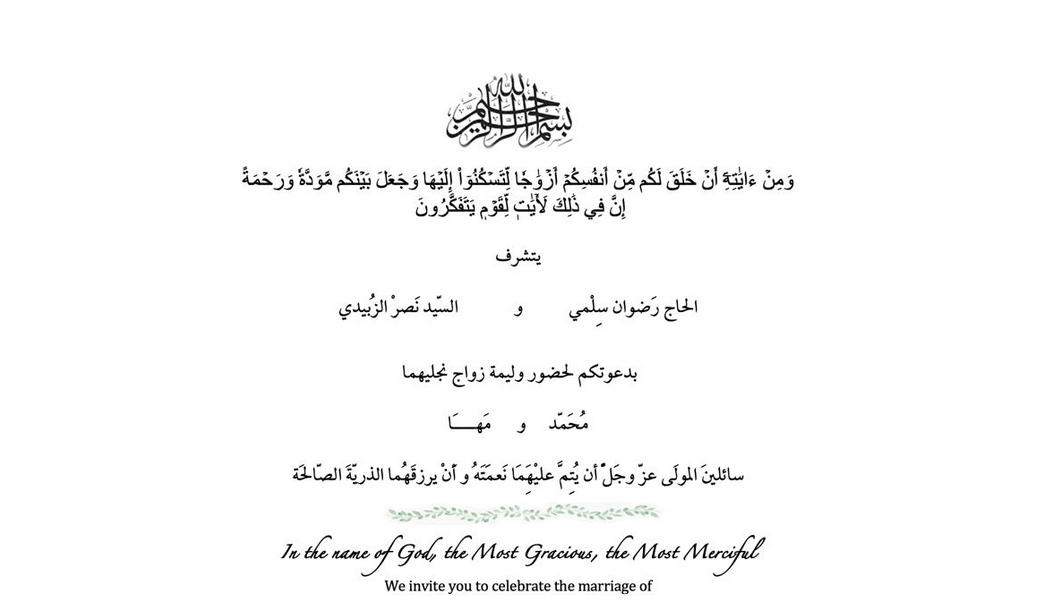 بسم الله الرحمن الرحيم
وَمِنۡ ءَايَٰتِهِۦٓ أَنۡ خَلَقَ لَكُم مِّنۡ أَنفُسِكُمۡ أَزۡوَٰجٗا لِّتَسۡكُنُوٓاْ إِلَيۡهَا وَجَعَلَ بَيۡنَكُم مَّوَدَّةٗ وَرَحۡمَةًۚ
إِنَّ فِي ذَٰلِكَ لَأٓيَٰتٖ لِّقَوۡمٖ يَتَفَكَّرُونَ
يتشرف
الحاج رَضوان سِلْمي و السّيد نَصرْ الزُبيدي
بدعوتكم لحضور وليمة زواج نجليهما
مُحَمّد و مَهـــَا
سائلينَ المولَى عزّ وجَلّ أن يُتِمَّ عليْهِمَا نَعمَتَهُ و أنْ يرزقَهُما الذريّةَ الصّالحَة
In the name of God, the Most Gracious, the Most Merciful
We invite you to celebrate the marriage of